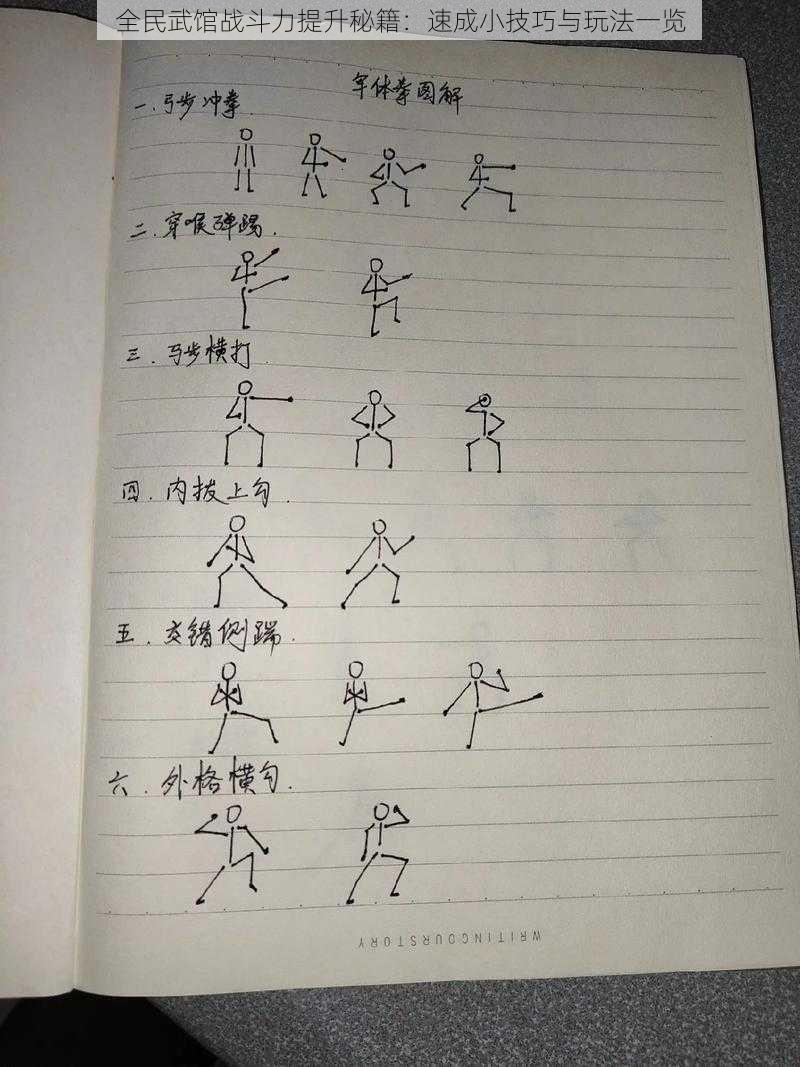 全民武馆战斗力提升秘籍：速成小技巧与玩法一览
军体拳图解
一.弓步冲拳.
二.穿喉弹踢.
三.马步横打
四.内拨上勾.
五.交错侧踹.
六.外格横勾.
WRITINGOURSTORY